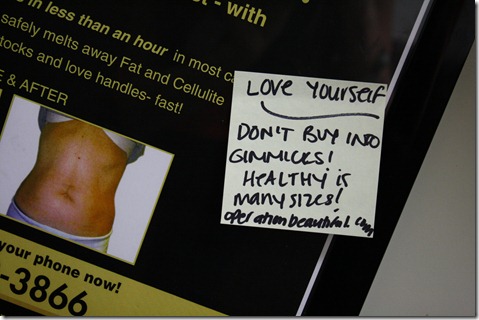 st - with
in less than an hour in most c
safely melts away Fat and Cellulite
tocks and love handles- fast!
E & AFTER
your phone now!
-3866
LOVE YOURSELF
DON'T BUY INTO
GIMMICKS!
HEALTHY is
MANY SIZES!
operationbeautiful.com